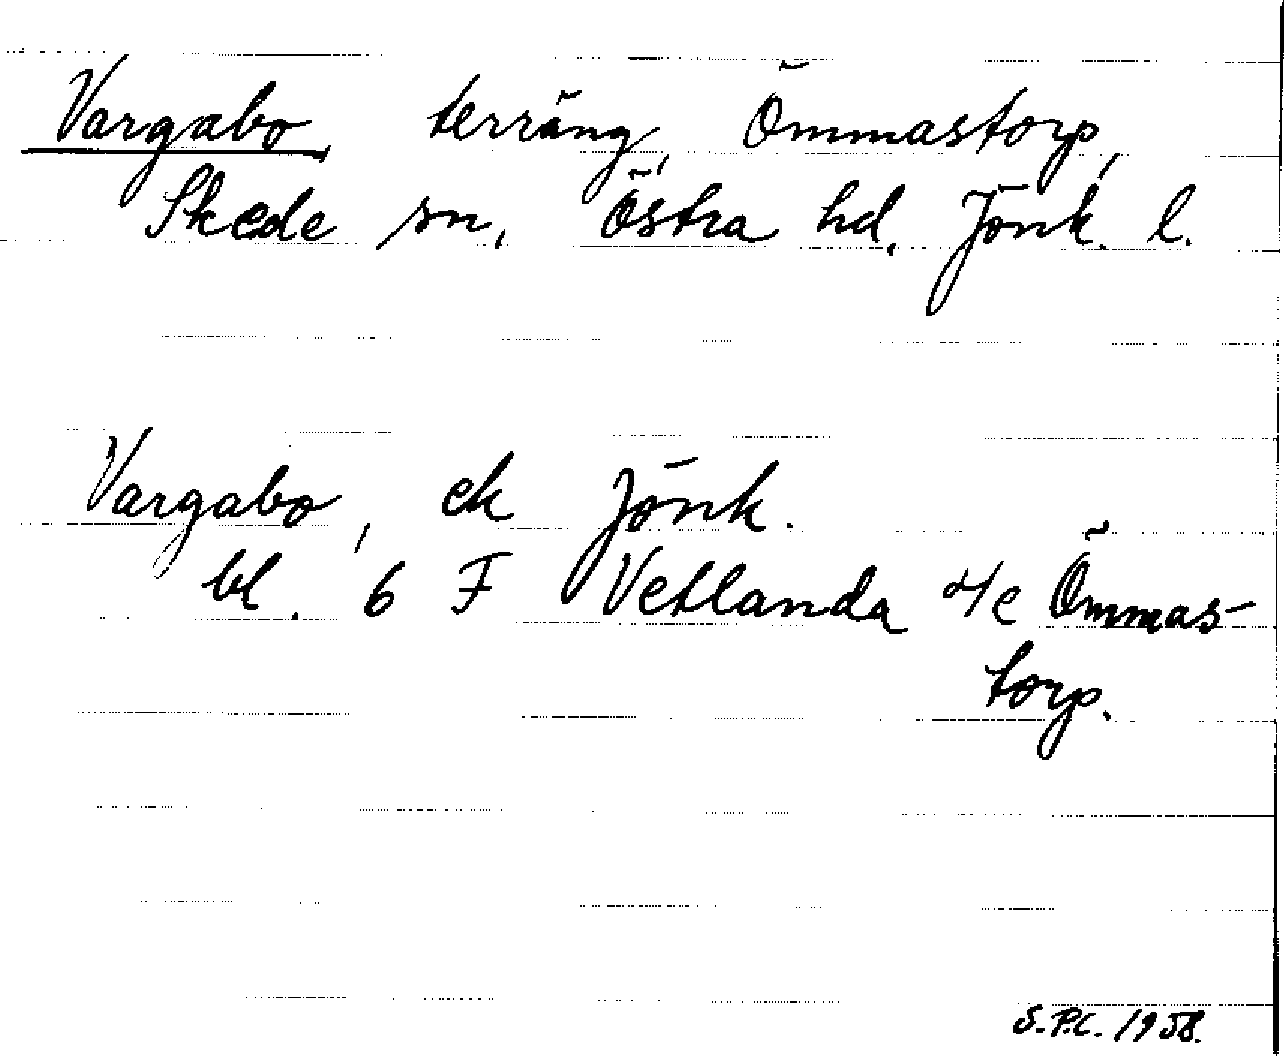 Vargabo, terräng, Ömmastorp,
Skede sn, Östra hd, Jönk. l.
Vargabo, ek Jönk.
bl. 6 F Vetlanda 4c Ömmas-
torp.
S.P.C. 1958.